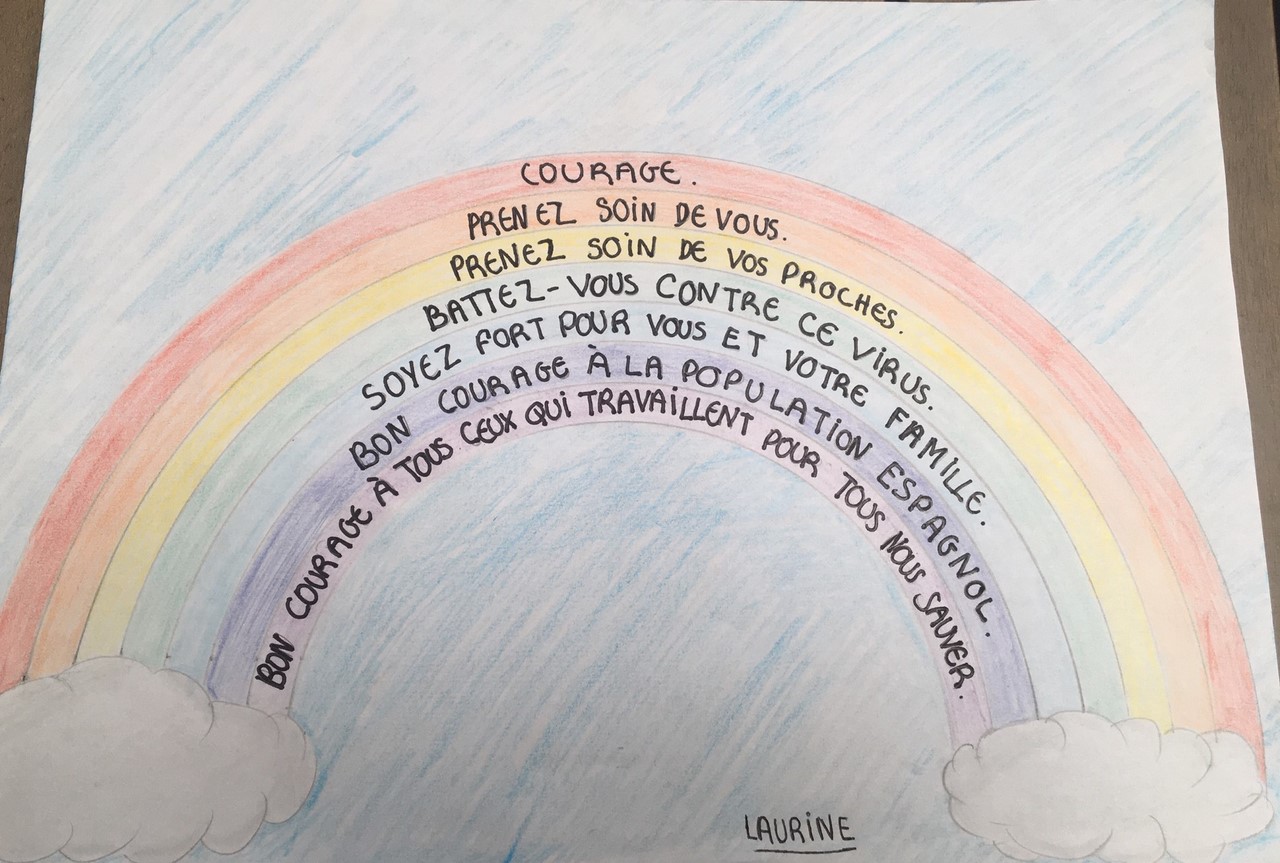 COURAGE.
PRENEZ SOIN DE VOUS.
PRENEZ SOIN DE VOS PROCHES.
BATTEZ-VOUS CONTRE CE VIRUS.
SOYEZ FORT POUR VOUS ET VOTRE FAMILLE.
BON COURAGE À LA POPULATION ESPAGNOL.
BON COURAGE À TOUS CEUX QUI TRAVAILLENT POUR TOUS NOUS SAUVER.
LAURINE